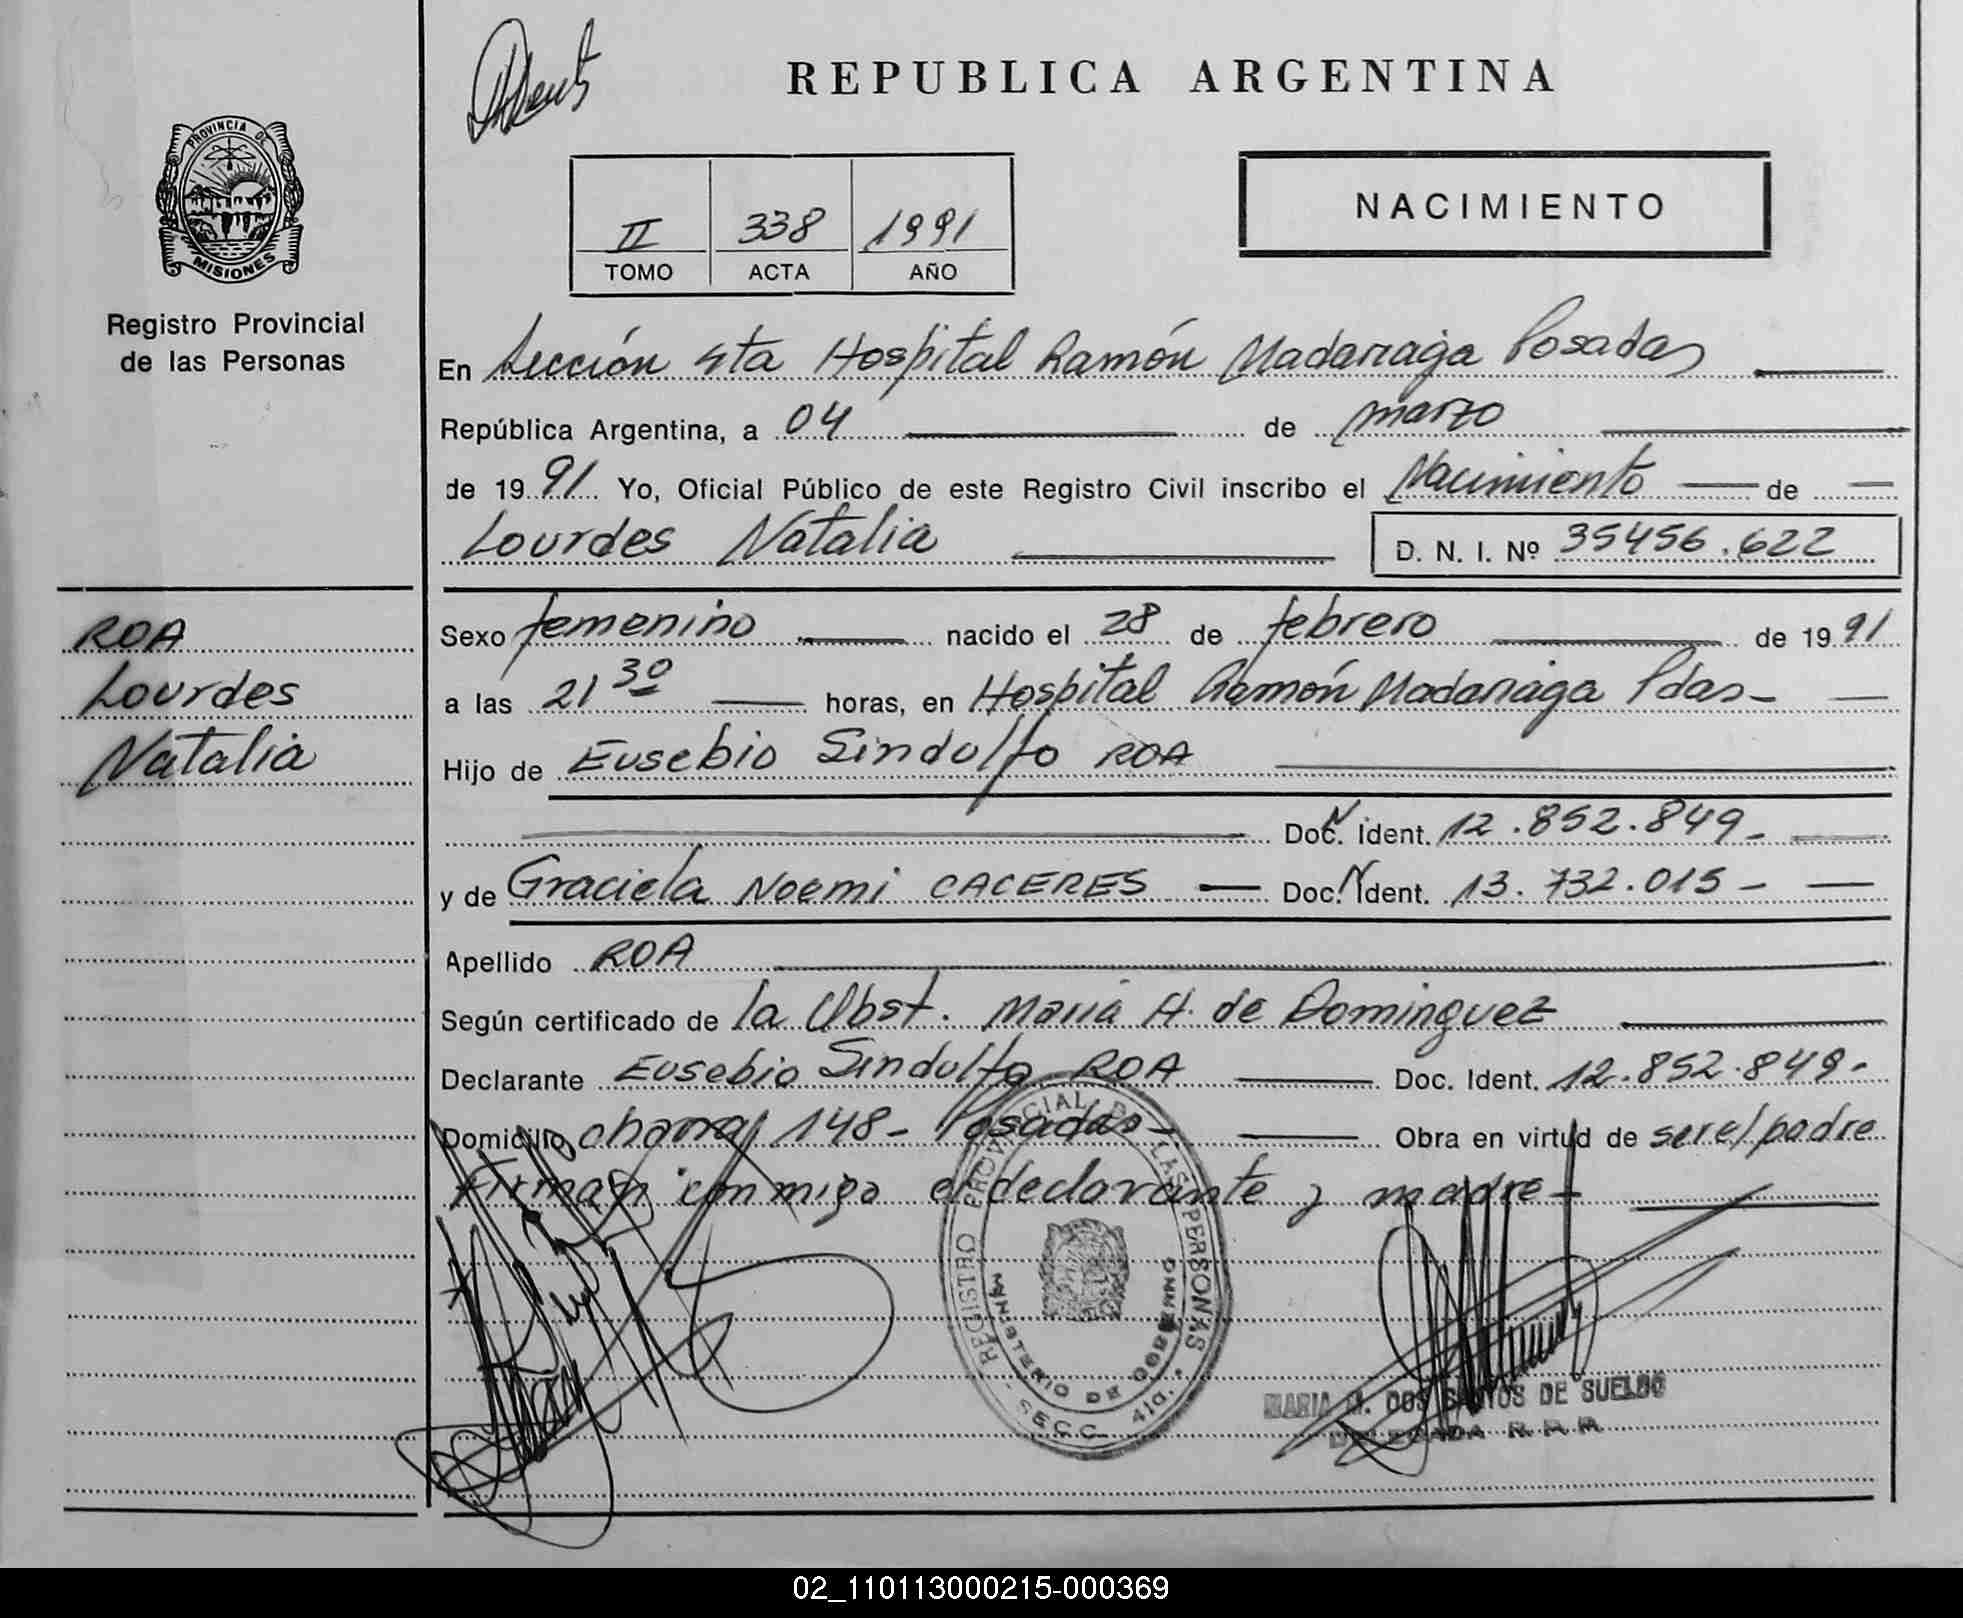 REPUBLICA ARGENTINA
PROVINCIA DE
MISIONES
Registro Provincial
de las Personas
II 338 1991
TOMO ACTA AÑO
NACIMIENTO
En Sección 4ta Hospital Ramón Madariaga Posadas
República Argentina, a 04 de marzo
de 1991 Yo, Oficial Público de este Registro Civil inscribo el Nacimiento de
Lourdes Natalia D. N. I. Nº 35456.622
ROA
Lourdes
Natalia
Sexo femenino nacido el 28 de febrero de 1991
a las 21 30 horas, en Hospital Ramón Madariaga Pdas-
Hijo de Eusebio Sindulfo ROA
Doc. Ident. 12.852.849-
y de Graciela Noemi CACERES Doc. Ident. 13.732.015-
Apellido ROA
Según certificado de la Obst. Maria H. de Dominguez
Declarante Eusebio Sindulfo ROA Doc. Ident. 12.852.849-
Domicilio 148- Posadas- Obra en virtud de ser el padre
Firman conmigo el declarante y madre-
REGISTRO PROVINCIAL DE LAS PERSONAS
MINISTERIO DE GOBIERNO
SECC. 4ta.
MARIA M. DOS SANTOS DE SUELDO
DELEGADA R.P.P.
02_110113000215-000369